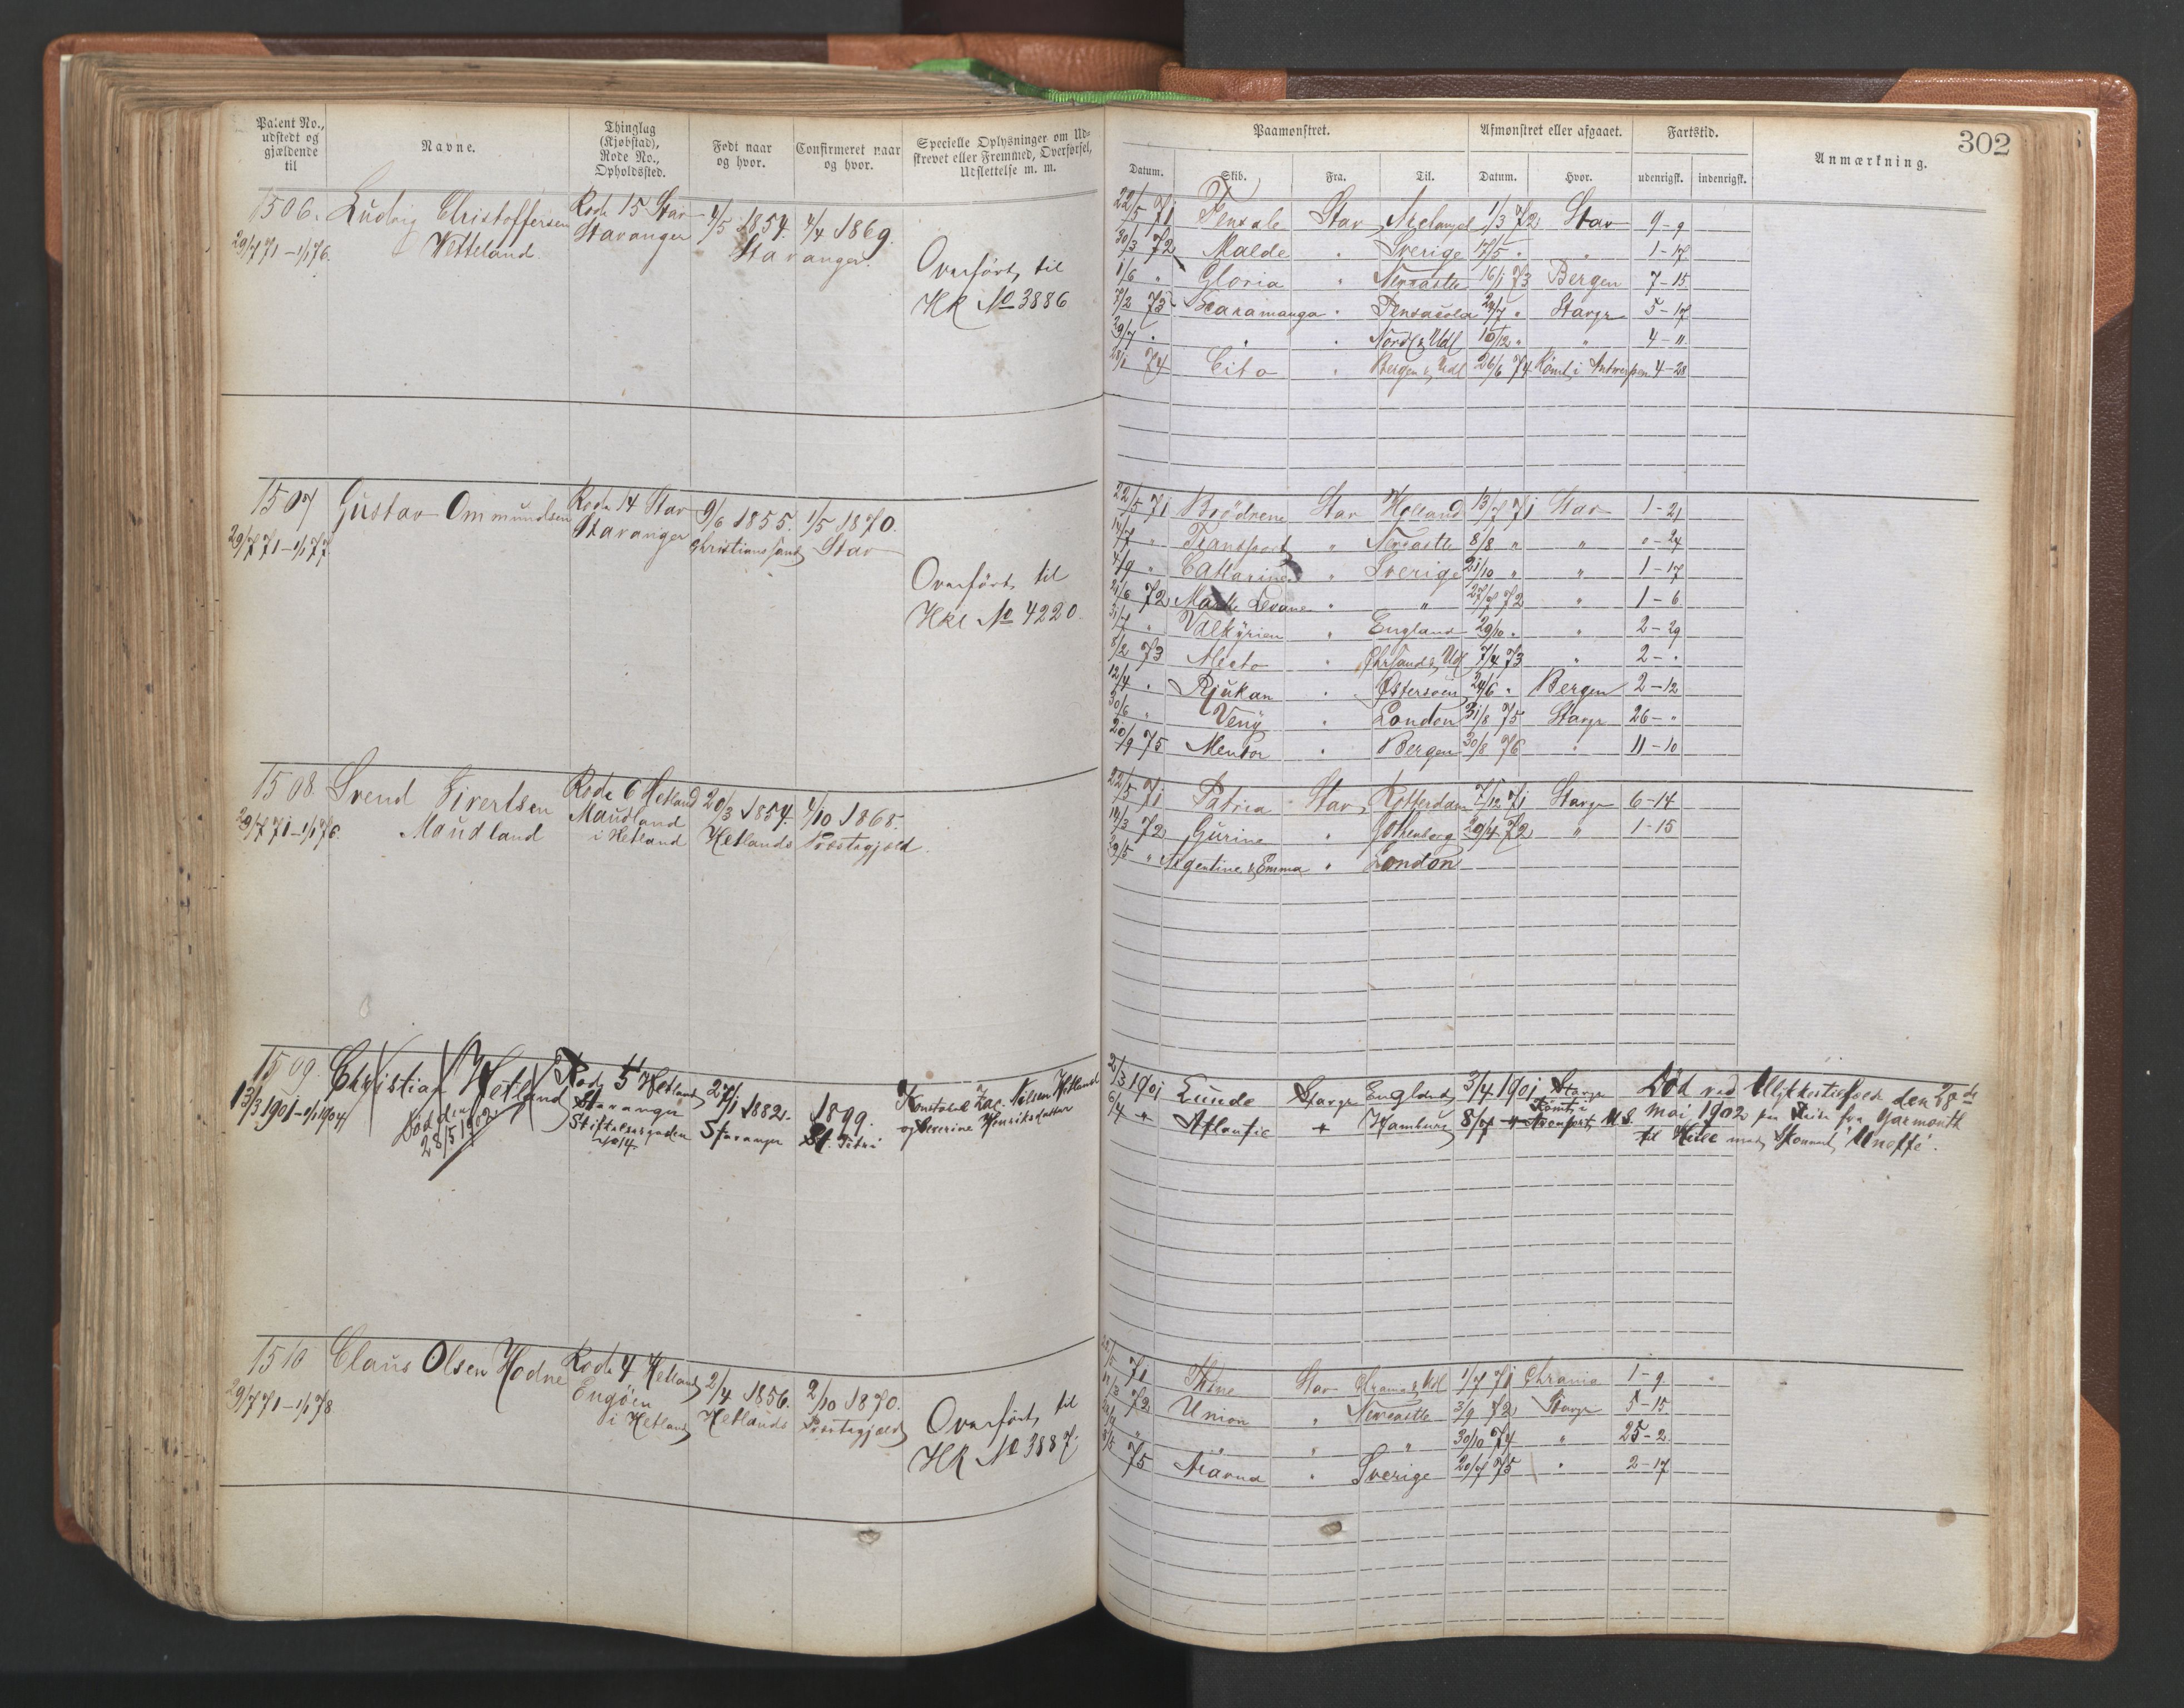 302
Patent No., udstedt og gjældende til
Navne.
Thinglag (Kjøbstad), Rode No., Opholdssted.
Født naar og hvor.
Confirmeret naar og hvor.
Specielle Oplysninger om Udskrevet eller Fremmed, Overførsel, Udslettelse m. m.
Paamønstret.
Afmønstret eller afgaaet.
Fartstid.
Anmærkning.
Datum. Skib. Fra. Til. Datum. Hvor. udenrigsk. indenrigsk.
1506. Ludvig Christoffersen Rode 15 Stav 4/5 1854. 4/4 1869.
29/7 71-1/1 76. Wetteland. Stavanger Stavanger.
Overført til
HR No 3886
22/5 71 Stav 1/3 72 Stav 9-9
30/3 72 Malde " Sverige 17/5 " " 1-17
1/6 " Gloria " Newcastle 16/1 73 Bergen 7-15
7/2 73 " Pensacola 24/7 " Stavgr 5-17
29/7 " " " Nord & Udl 10/12 " " 4-11
74 Cito " Bergen & Udl 26/6 74 Rømt i Antwerpen 4-28
1507 Gustav Ommundsen Rode 14 Stav 9/6 1855. 1/5 1870.
29/7 71-1/1 77 Stavanger Christianssand Stav
Overført til
HRl No 4220.
22/5 71 Brødrene Stav Holland 13/7 71 Stav 1-21
14/7 " Transport " Newcastle 8/8 " " "-24
4/9 " Catharine " Sverige 21/10 " " 1-17
21/6 72 " " 27/7 72 " 1-6
31/7 " Valkyrien " England 29/10 " " 2-29
8/2 73 Alecto " Chrsand & Udl 7/4 73 " 2-"
12/4 " Rjukan " Østersøen 24/6 " Bergen 2-12
30/6 " Veny " London 31/8 75 Stavgr 26-"
20/9 75 Mentor " Bergen 30/8 76 " 11-10
1508. Svend Sivertsen Rode 6 Hetland 20/3 1854. 4/10 1868.
29/7 71-1/1 76. Maudland Maudland i Hetland Hetlands Præstegjæld.
22/5 71 Patria Stav Rotterdam 7/12 71 Stavgr 6-14
14/3 72 Gurine " Gothenborg 29/4 72 " 1-15
29/5 " Argentine & Emma " London
1509. Christian Hetland Rode 5 Hetland 27/1 1882. 1899.
13/3 1901-1/1 1904 Død den 28/5 1902 Stavanger Stiftelsesgaden Stavanger St. Petri
Konstabel Zac. Nelsen Hetland
og Severine Henriksdatter
2/3 1901 Lunde Stavgr England 3/4 1901 Stavgr
6/4 " Atlantic " Hamburg 8/7 " Rømt i
Død ved Ulykkestilfælde den 28de
mai 1902 paa Reise fra Yarmouth
til med
1510 Claus Olsen Hodne Rode 4 Hetland 2/4 1856. 2/10 1870.
29/7 71-1/1 78 Engøen i Hetland Hetlands Præstegjæld
Overført til
HR No 3887
71 Stav Chrania & Udl 1/7 71 Chrania 1-9
72 Union " Newcastle 3/9 72 Stavgr 5-15
" " " " 30/10 74 " 25-2
75 " Sverige 20/7 75 " 2-17